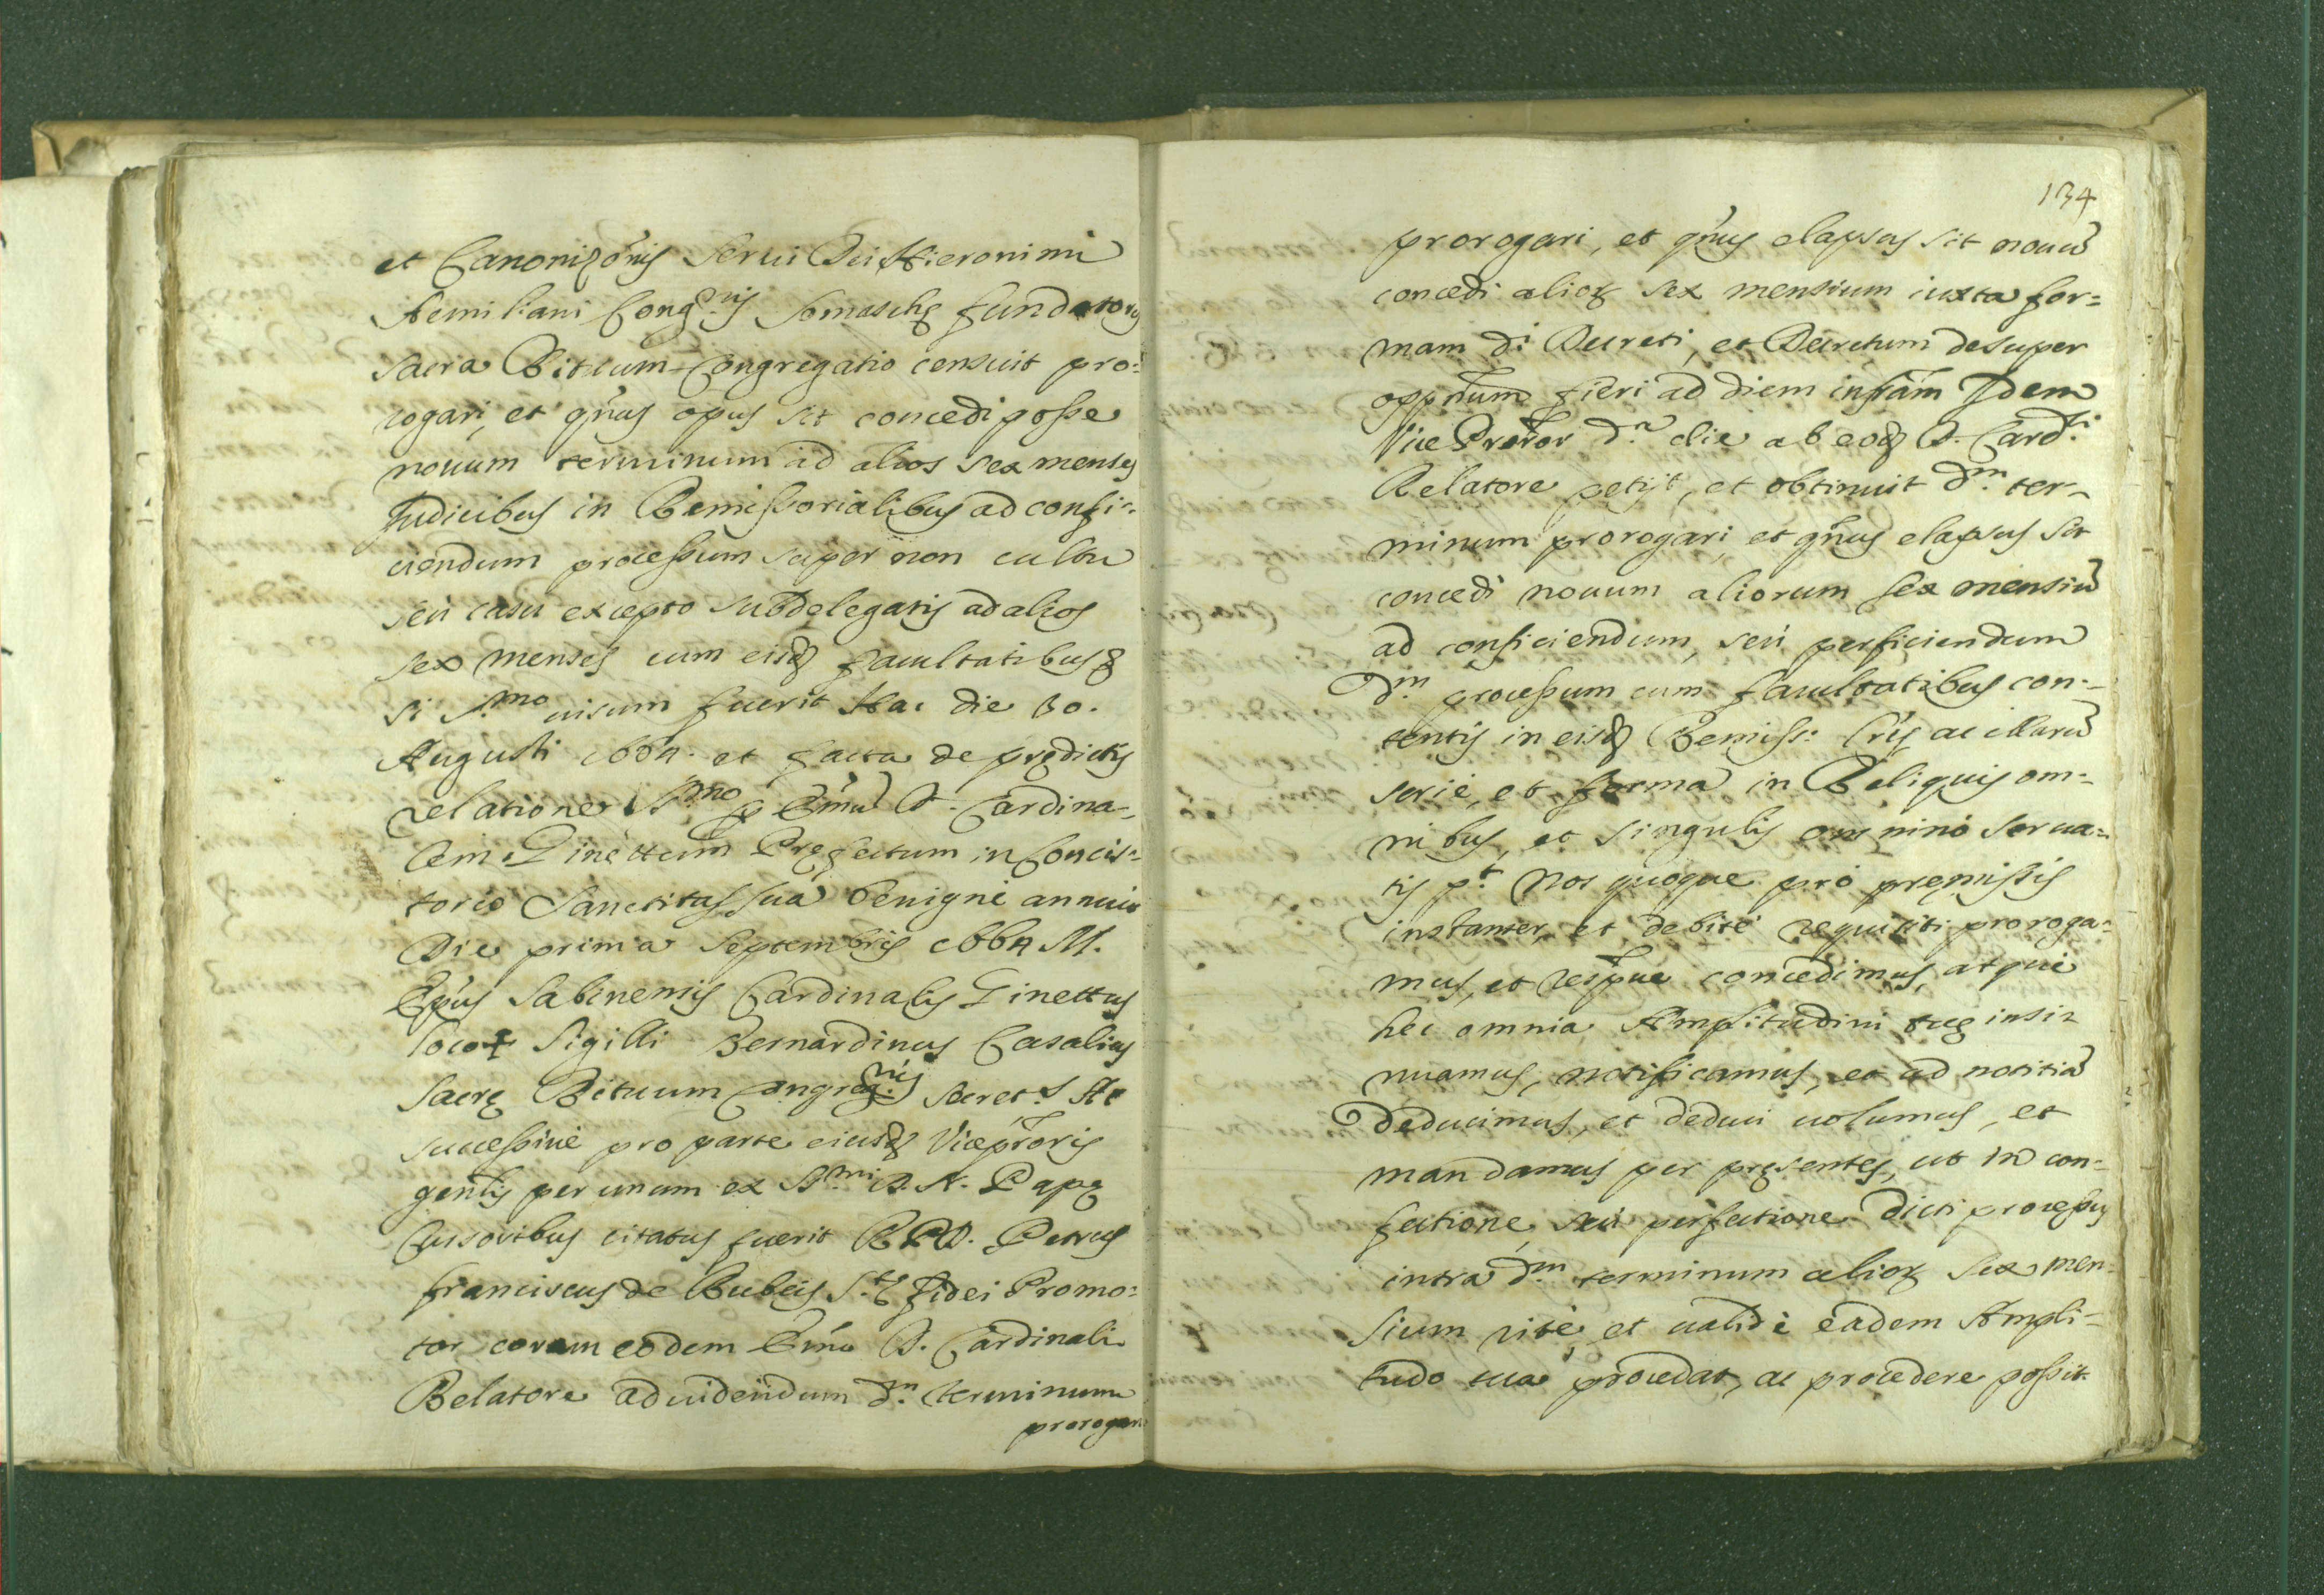 et Canonizõnis Serui Dei Hieronimi
Aemiliani Cong.nis Somaschę fundatoris
sacra Rituum Congregatio censuit pro=
rogari, et qñus opus sit concedi posse
nouum terminum ad alios sex menses
Judicibus in Remissorialibus ad confi=
ciendum processum super non cultu
seù casu excepto subdelegatis ad alios
sex menses cum eisd facultatibus
si S.mo uisum fuerit Hac die 30.
Augusti 1664. et facta de prędictis
relatione S.mo p Emũ D. Cardina=
lem Ginettum Pręfectum in Concis=
torio Sanctitas sua benignè annuit
Die prima Septembris 1664 M.
Epũs Sabinensis Cardinalis Ginettus
loco + Sigilli Bernardinus Casalius
Sacrę Rituum Congreg.nis Secret.s Ac
successiuè pro parte eiusd Viceprõris
gentis per unum ex S.mi D. N. Papę
Cursoribus citatus fuerit R P D. Petrus
franciscus de Rubeis S.tę fidei Promo=
tor coram eodem Emõ D. Cardinali
Relatore ad uidendum d.m terminum
prorogari
134
prorogari, et qñus elapsus sit nouũ
concedi alioꝝ sex mensium iuxta for=
mam d.i Decreti, et Decretum desuper
oppñum fieri ad diem infrãm Idem
Vice Prõtor d.a die ab eod D. Card.li
Relatore petijt, et obtinuit d.m ter=
minum prorogari, et qñus elapsus sit
concedi nouum aliorum sex mensiũ
ad conficiendum, seù perficiendum
d.m processum cum facultatibus con=
tentis in eisd Remiss: Lris ac illarũ
serie, et forma in Reliquis om=
nibus, et singulis omninò serua=
tis p.t Nos quoque prò pręmissis
instanter, et debitè requisiti proroga=
mus, et respue concedimus, atque
hec omnia Amplitudini tuę insi=
nuamus, notificamus, et ad notitiã
deducimus, et deduci uolumus, et
mandamus per pręsentes, ut in con=
fectione, seù perfectione dicti processus
intra d.m terminum alioꝝ sex men=
sium ritè, et ualidè eadem Ampli=
tudo tua procedat, ac procedere possit